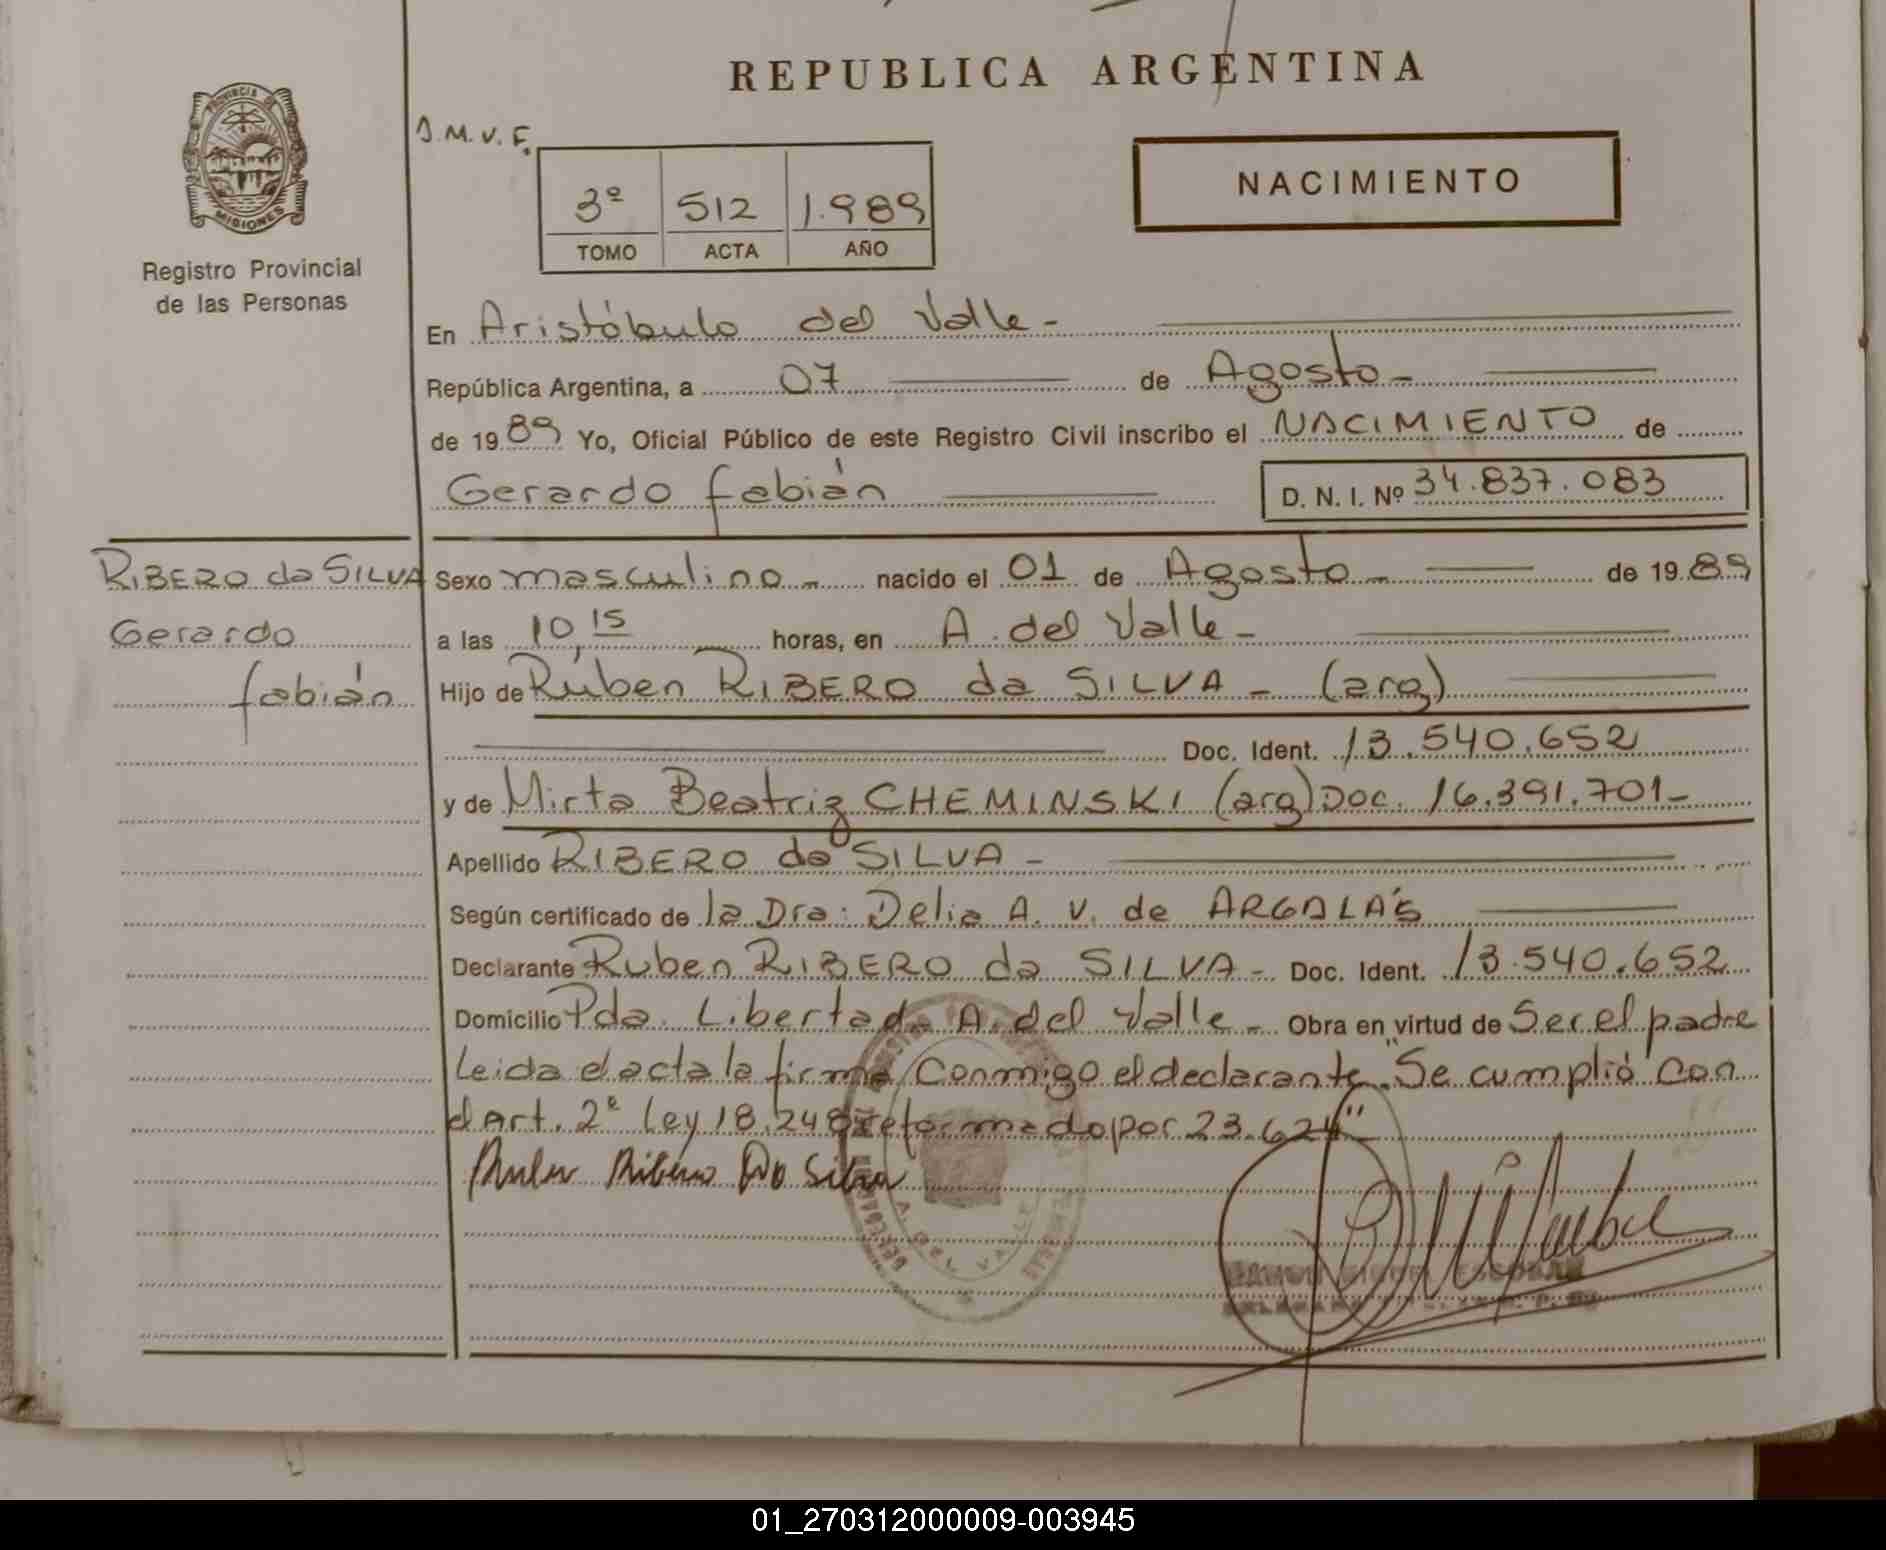 REPUBLICA ARGENTINA
PROVINCIA DE
MISIONES
Registro Provincial
de las Personas
D.M.V.F.
3º 512 1.989
TOMO ACTA AÑO
NACIMIENTO
En Aristóbulo del Valle -
República Argentina, a 07 de Agosto -
de 1989 Yo, Oficial Público de este Registro Civil inscribo el NACIMIENTO de
Gerardo fabián D. N. I. Nº 34.837.083
RIBERO da SILVA
Gerardo
fabián
Sexo masculino - nacido el 01 de Agosto - de 1989
a las 10,15 horas, en A. del Valle -
Hijo de Rúben RIBERO da SILVA - (arg)
Doc. Ident. 13.540.652
y de Mirta Beatriz CHEMINSKI (arg) Doc. 16.391.701-
Apellido RIBERO da SILVA -
Según certificado de la Dra: Delia A. V. de ARGALA'S
Declarante Ruben RIBERO da SILVA - Doc. Ident. 13.540.652
Domicilio Pda. Libertad. A. del Valle - Obra en virtud de Ser el padre
Leida el acta la firma Conmigo el declarante. "Se cumplió Con
el Art. 2º Ley 18.248 reformado por 23.624"
Ruben Ribero Da Silva
A. DEL VALLE
ESCOBAR
01_270312000009-003945